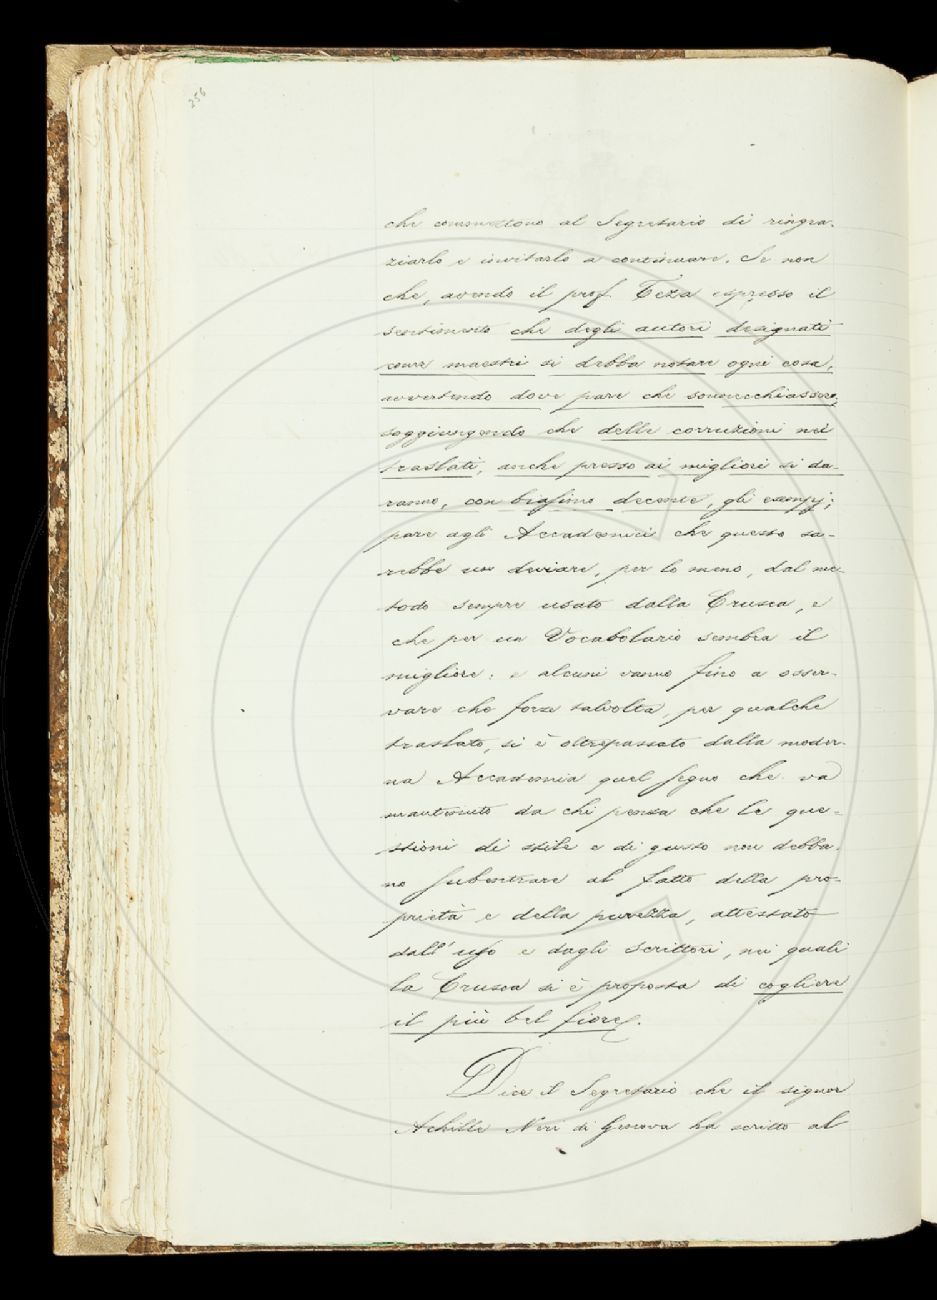 256
che commettono al Segretario di ringra-
ziarlo e invitarlo a continuare. Se non
che, avendo il prof. Teza espresso il
sentimento che degli autori designati
come maestri si debba notare ogni cosa,
avvertendo dove pare che sonnecchiassero,
soggiungendo che delle corruzioni nei
traslati, anche presso ai migliori si da-
ranno, con biasimo decente, gli esempj;
pare agli Accademici che questo sa-
rebbe un deviare, per lo meno, dal me-
todo sempre usato dalla Crusca, e
che per un Vocabolario sembra il
migliore: e alcuni vanno fino a osser-
vare che forse talvolta, per qualche
traslato, si è oltrepassato dalla moder-
na Accademia quel segno che va
mantenuto da chi pensa che le que-
stioni di stile e di gusto non debba-
no subentrare al fatto della pro-
prietà e della purezza, attestato
dall'uso e dagli scrittori, nei quali
la Crusca si è proposta di cogliere
il più bel fiore.
Dice il Segretario che il signor
Achille Neri di Genova ha scritto al